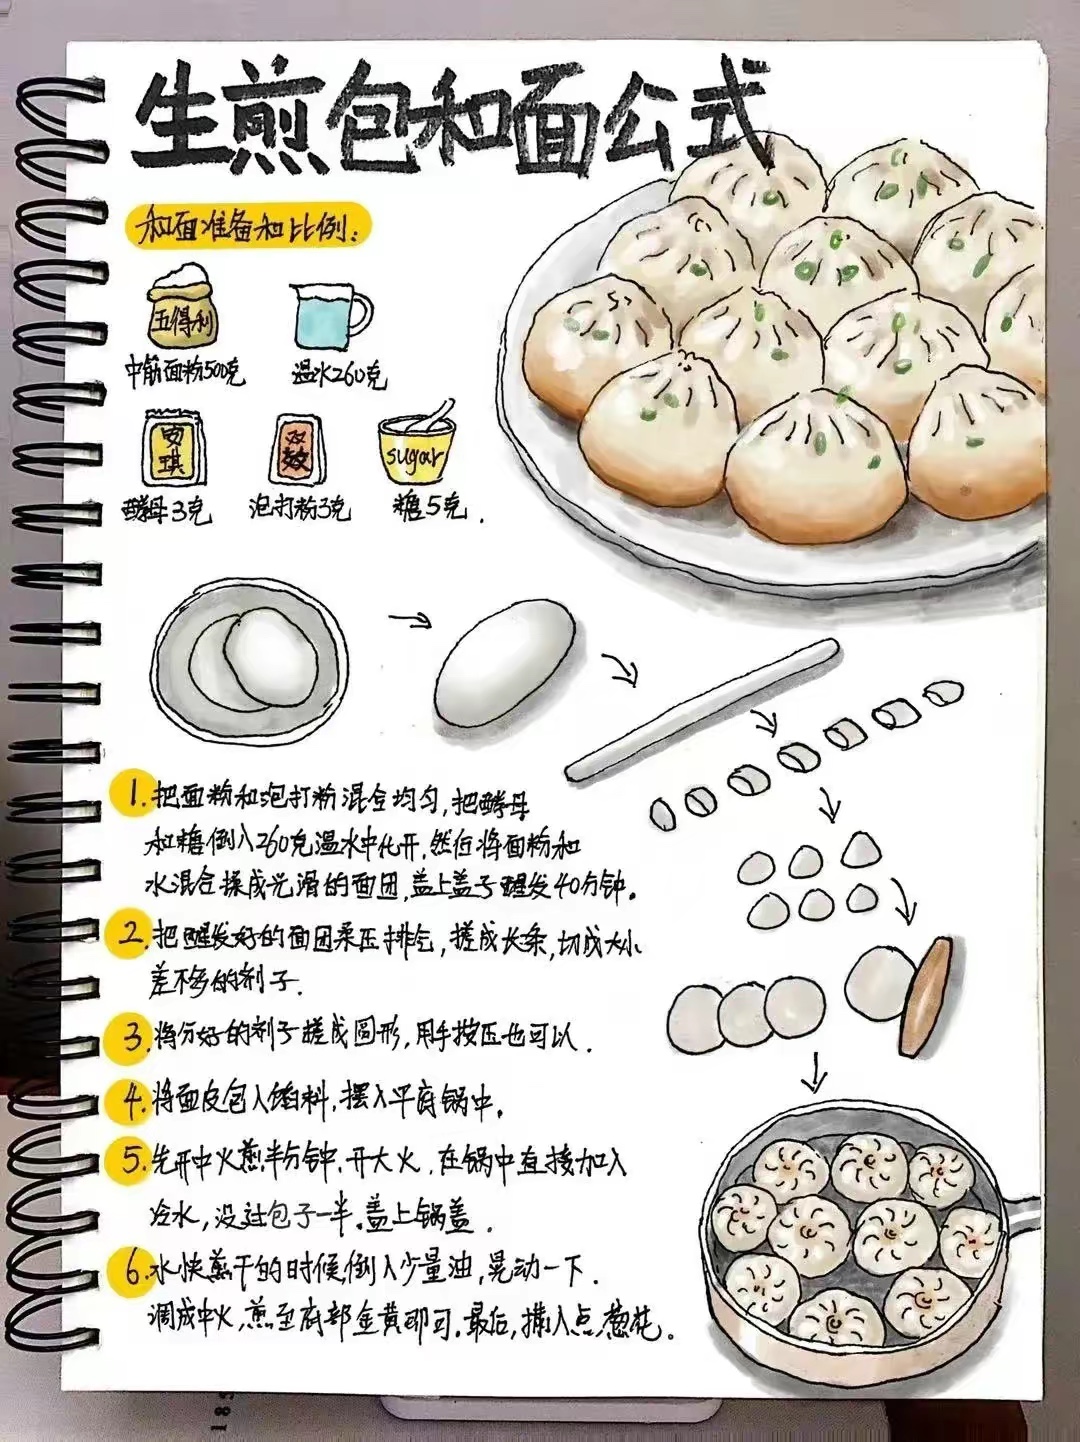 生煎包和面公式
和面准备和比例:
五得利
中筋面粉500克
温水260克
安琪
酵母3克
双效
泡打粉3克
sugar
糖5克.
1.把面粉和泡打粉混合均匀,把酵母
和糖倒入260克温水中化开.然后将面粉和
水混合揉成光滑的面团,盖上盖子醒发40分钟。
2.把醒发好的面团柔压排气,搓成长条,切成大小
差不多的剂子.
3.将分好的剂子搓成圆形,用手按压也可以.
4.将面皮包入馅料,摆入平底锅中.
5.先开中火煎半分钟.开大火,在锅中直接加入
冷水,没过包子一半.盖上锅盖.
6.水快煎干的时候,倒入少量油,晃动一下.
调成中火,煎至底部金黄即可.最后,撒入点葱花.